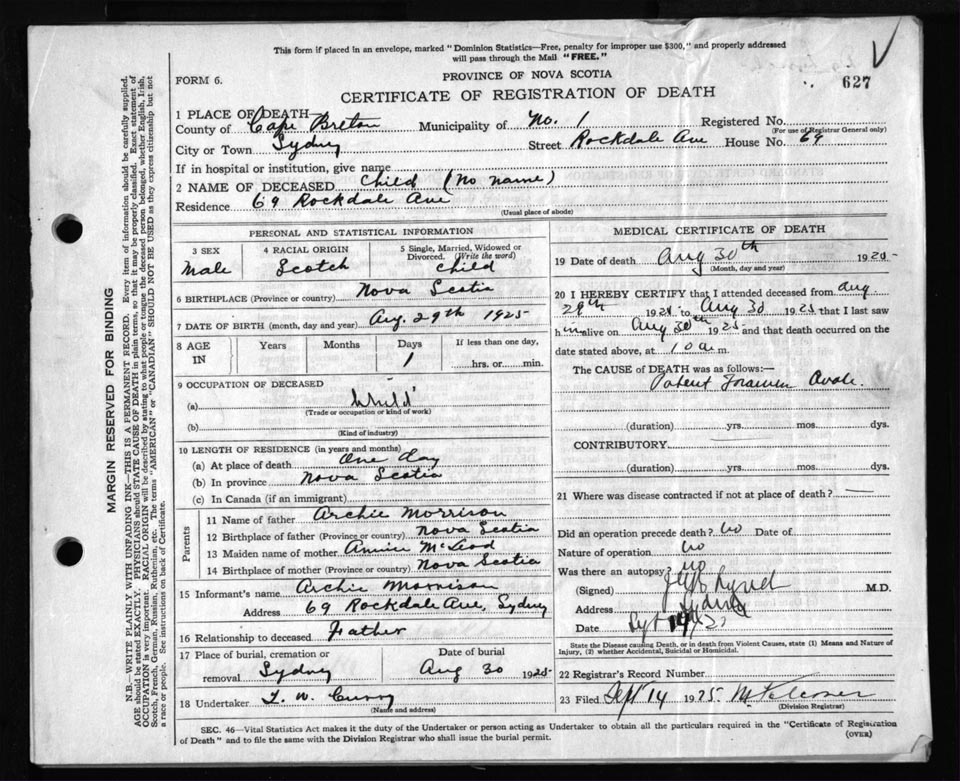 This form if placed in an envelope, marked "Dominion Statistics—Free, penalty for improper use $300," and properly addressed
will pass through the Mail "FREE."
PROVINCE OF NOVA SCOTIA
FORM 6.
627
CERTIFICATE OF REGISTRATION OF DEATH
1 PLACE OF DEATH
County of Cape Breton Municipality of No. 1 Registered No.
(For use of Registrar General only)
City or Town Sydney Street Rockdale Ave House No. 69
If in hospital or institution, give name
2 NAME OF DECEASED Child (No name)
Residence 69 Rockdale Ave
(Usual place of abode)
PERSONAL AND STATISTICAL INFORMATION
3 SEX Male
4 RACIAL ORIGIN Scotch
5 Single, Married, Widowed or Divorced. (Write the word) Child
6 BIRTHPLACE (Province or country) Nova Scotia
7 DATE OF BIRTH (month, day and year) Aug. 29th 1925
8 AGE IN Years Months Days 1 If less than one day, hrs. or min.
9 OCCUPATION OF DECEASED
(a) Child
(Trade or occupation or kind of work)
(b)
(Kind of industry)
10 LENGTH OF RESIDENCE (in years and months)
(a) At place of death One day
(b) In province Nova Scotia
(c) In Canada (if an immigrant)
Parents
11 Name of father Archie Morrison
12 Birthplace of father (Province or country) Nova Scotia
13 Maiden name of mother Annie McLeod
14 Birthplace of mother (Province or country) Nova Scotia
15 Informant's name Archie Morrison
Address 69 Rockdale Ave, Sydney
16 Relationship to deceased Father
17 Place of burial, cremation or removal Sydney Date of burial Aug 30 1925
18 Undertaker T. W. Curry
(Name and address)
MEDICAL CERTIFICATE OF DEATH
19 Date of death Aug 30th 1925
(Month, day and year)
20 I HEREBY CERTIFY that I attended deceased from Aug.
29th 1925 to Aug 30 1925 that I last saw
him alive on Aug 30th 1925 and that death occurred on
date stated above, at 10 a. m.
The CAUSE of DEATH was as follows:—
Patent Foramen Ovale.
(duration) yrs. mos. dys.
CONTRIBUTORY.
(duration) yrs. mos. dys.
21 Where was disease contracted if not at place of death?
Did an operation precede death? No Date of
Nature of operation No
Was there an autopsy? No
(Signed) M.D.
Address Sydney
Date
State the Disease causing Death, or in death from Violent Causes, state (1) Means and Nature of
Injury, (2) whether Accidental, Suicidal or Homicidal.
22 Registrar's Record Number
23 Filed Sept 14 1925
(Division Registrar)
SEC. 46—Vital Statistics Act makes it the duty of the Undertaker or person acting as Undertaker to obtain all the particulars required in the "Certificate of Registration
of Death" and to file the same with the Division Registrar who shall issue the burial permit.
(OVER)
MARGIN RESERVED FOR BINDING
N.B.—WRITE PLAINLY WITH UNFADING INK—THIS IS A PERMANENT RECORD. Every item of information should be carefully supplied.
AGE should be stated EXACTLY. PHYSICIANS should STATE CAUSE OF DEATH in plain terms, so that it may be properly classified. Exact statement of
OCCUPATION is very important. RACIAL ORIGIN will be described by stating to what people or tongue the deceased person belonged, whether English, Irish,
Scotch, French, German, Russian, Ruthenian, etc. The terms "AMERICAN" or "CANADIAN" SHOULD NOT BE USED as they express citizenship but not
a race or people. See instructions on back of Certificate.